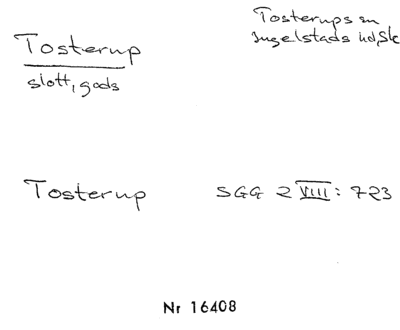 Tosterup
slott, gods
Tosterups sn
Ingelstads hd, Sk
Tosterup SGG 2 VIIII: 723
Nr 16408